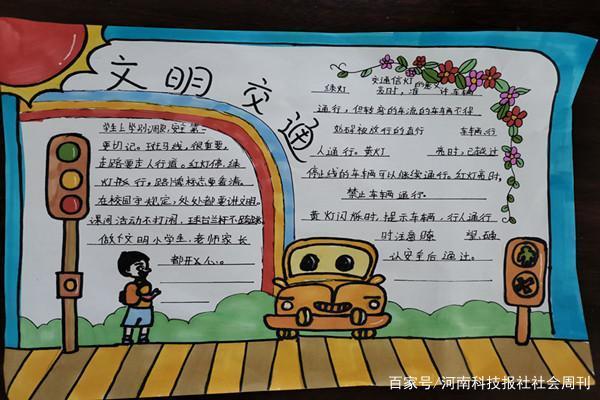 文明交通
学生上学别调皮,安全第一
更切记。班马线,很重要,
走路要走人行道。红灯停,绿
灯行,路牌标志要看清。
在校园守规定,处处都要讲文明。
课间活动不打闹,
做个文明小学生,老师家长
都开心。
交通信灯的意义
绿灯亮时,准许车辆
通行,但转弯的车流的车辆不得
妨碍被放行的直行车辆,行
人通行。黄灯亮时,已越过
停止线的车辆可以继续通行。红灯亮时,
禁止车辆通行。
黄灯闪烁时,提示车辆,行人通行
时注意瞭望,确
认安全后通过。
百家号/河南科技报社社会周刊